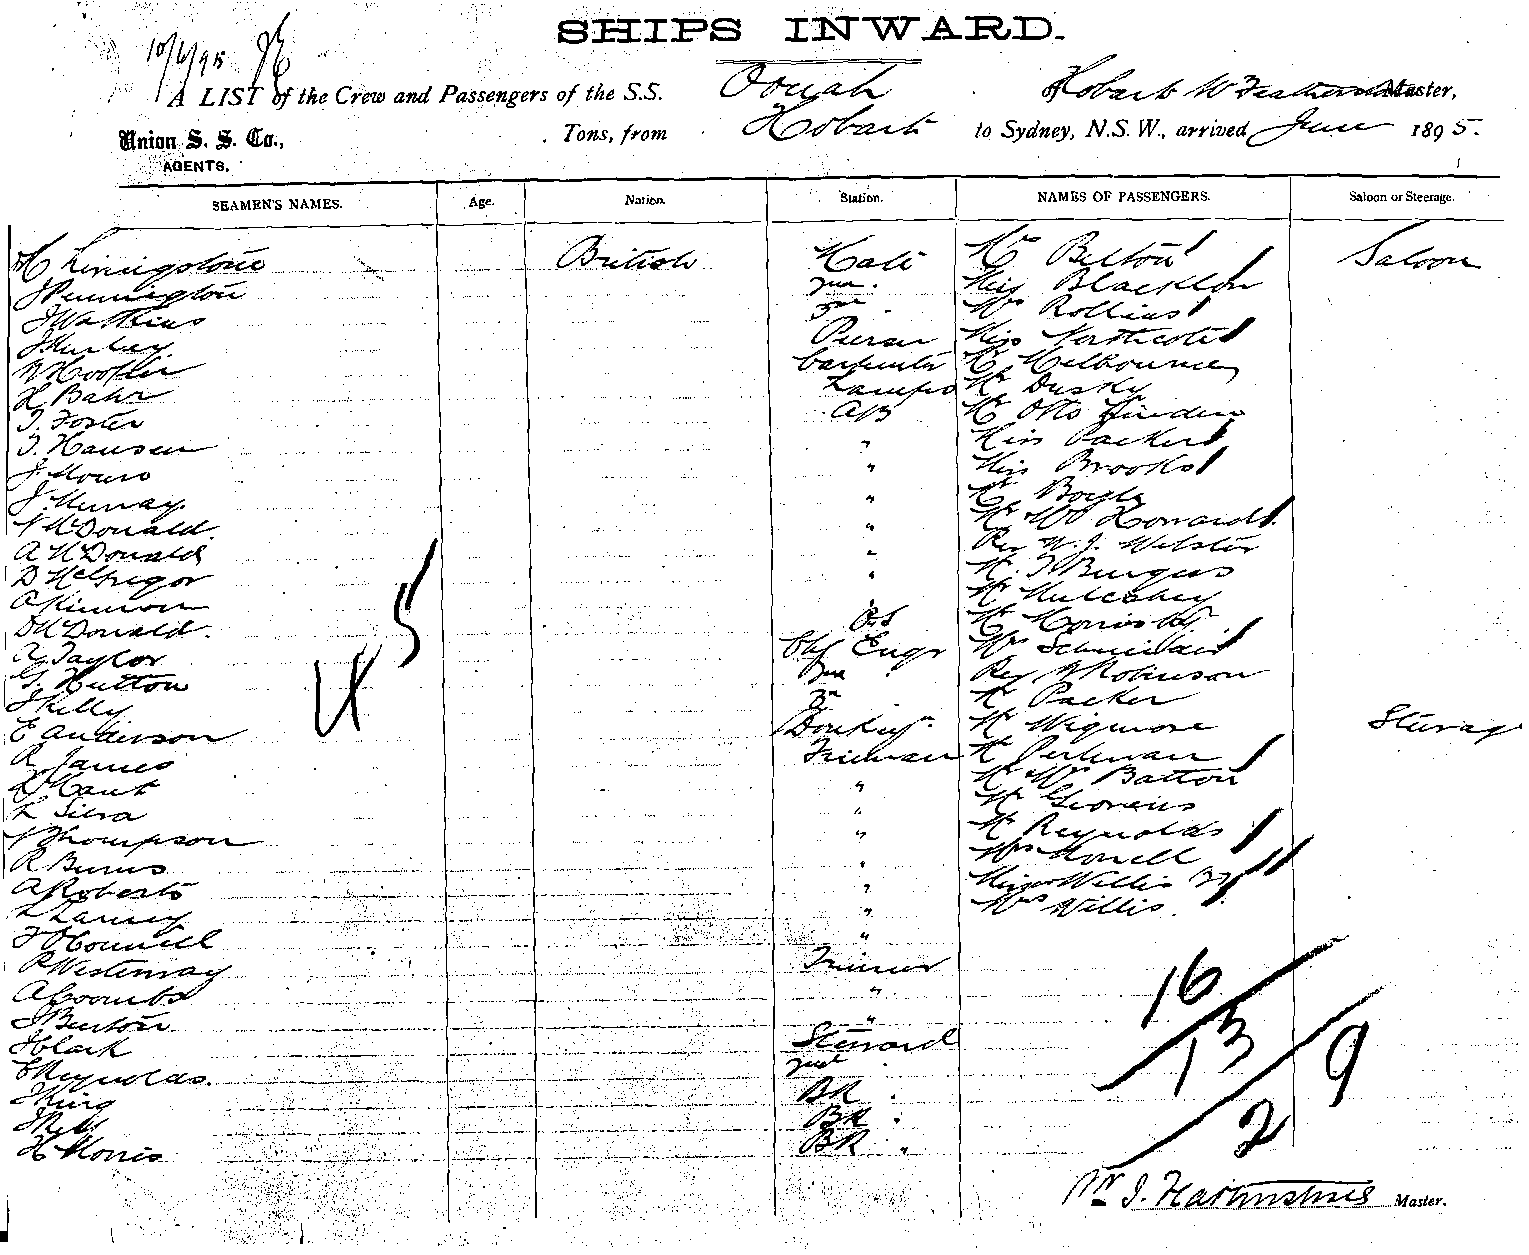 SHIPS INWARD.
10/6/95
A LIST of the Crew and Passengers of the S.S. Oonah Hobart W Master,
Union S. S. Co., Tons, from Hobart to Sydney, N.S.W., arrived June 1895.
AGENTS.
SEAMEN'S NAMES. Age. Nation. Station. NAMES OF PASSENGERS. Saloon or Steerage.
Livingstone British Mate Mr Belton Saloon
J Pennington 2nd . Miss Blacklow
J Watkins 3rd . Mrs Rollins
J Hurley Purser Miss Northcote
W Hooper Carpenter Mr Melbourne
H Bahr Lamps Mr Dusky
T. Foster AB Mr Otto
T. Hansen " Miss Packer
J. Monro " Miss Brooks
J. Murray " Mr Boyle
N McDonald. " Mr Mrs Howard
A McDonald " Rev W. J. Webster
D McGregor " Mr T Burgess
A Kinnon " Mr Mulcahy
D McDonald. OS Mr
R Taylor Chf Engr Mrs
G. Hutton 2nd . Rev W Robinson
J Kelly 3rd Mr Packer
E Anderson Donkey Mr Wigmore Steerage
R James Fireman Mr Perlman
Hant " Mr Mrs Batton
L Silva " Mr
N Thompson " Mr Reynolds
R Burns " Mrs Howell
A Roberts " Misses Willis
" Mrs Willis
J O'Connell "
R Westenray Trimmer
A Coombs "
J Burton "
J Clark Steward
C Reynolds. 2nd
J King BR .
J Bell BR .
H Morris BR .
45
16
13
9
2
Master.